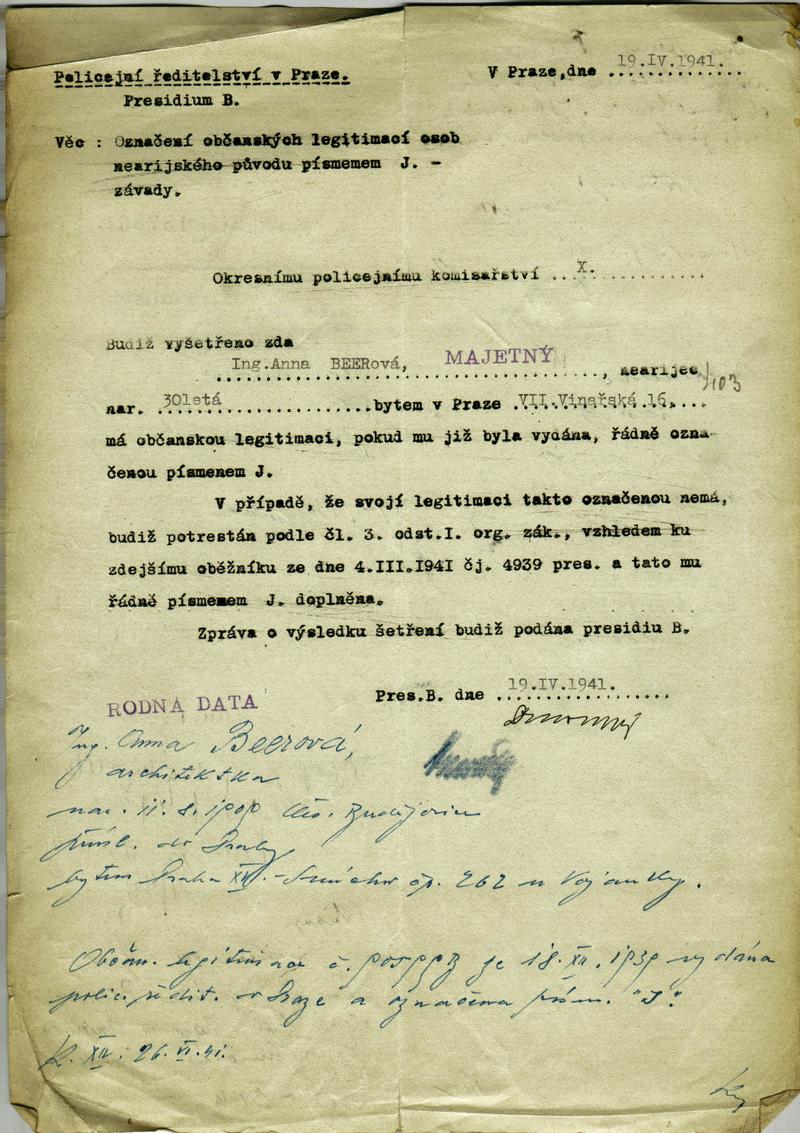 Policejní ředitelství v Praze.
V Praze,dne 19.IV.1941.
Presidium B.
Věc : Označení občanských legitimací osob
nearijského původu písmemem J. -
závady.
Okresnímu policejnímu komisařství ...X.............
Budiž vyšetřeno zda
Ing.Anna BEERová, MAJETNÝ, nearijec
/103
nar. 30letá..................bytem v Praze VII.Vinařská 16....
má občanskou legitimaci, pokud mu již byla vydána, řádně ozna-
čenou písmenem J.
V případě, že svojí legitimaci takto označenou nemá,
budiž potrestán podle čl. 3. odst.I. org. zák., vzhledem ku
zdejšímu oběžníku ze dne 4.III.1941 čj. 4939 pres. a tato mu
řádně písmenem J. doplněna.
Zpráva o výsledku šetření budiž podána presidiu B.
Pres.B. dne 19.IV.1941.
RODNÁ DATA
Ing. Anna Beerová,
architektka
nar. 11. 8. 1909 Čes. Budějovice
přísl. do Prahy
bytem Praha čp. 262
Občan. legitimace č. je 18. XII. 1939 vydána
polic. ředit. v Praze a označena písm. "J".
K. XIV. 26. VI. 41.